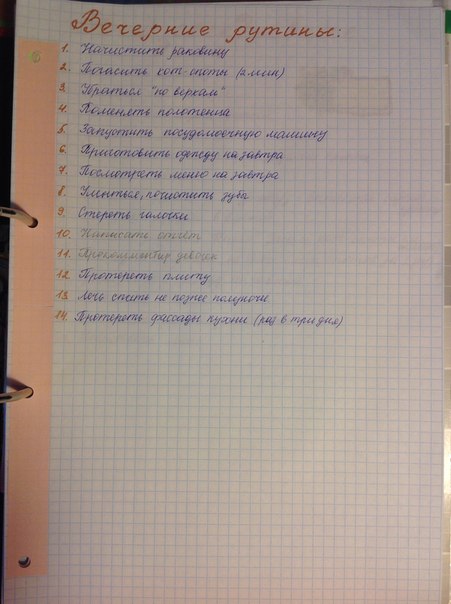 Вечерние рутины:
1. Начистить раковину
2. Погасить хот-споты (2 мин)
3. Убраться "по верхам"
4. Поменять полотенца
5. Запустить посудомоечную машину
6. Приготовить одежду на завтра
7. Посмотреть меню на завтра
8. Умыться, почистить зубы
9. Стереть галочки
10. Написать отчёт
11. девочек
12. Протереть плитку
13. Лечь спать не позже полуночи
14. Протереть фасады кухни (раз в три дня)